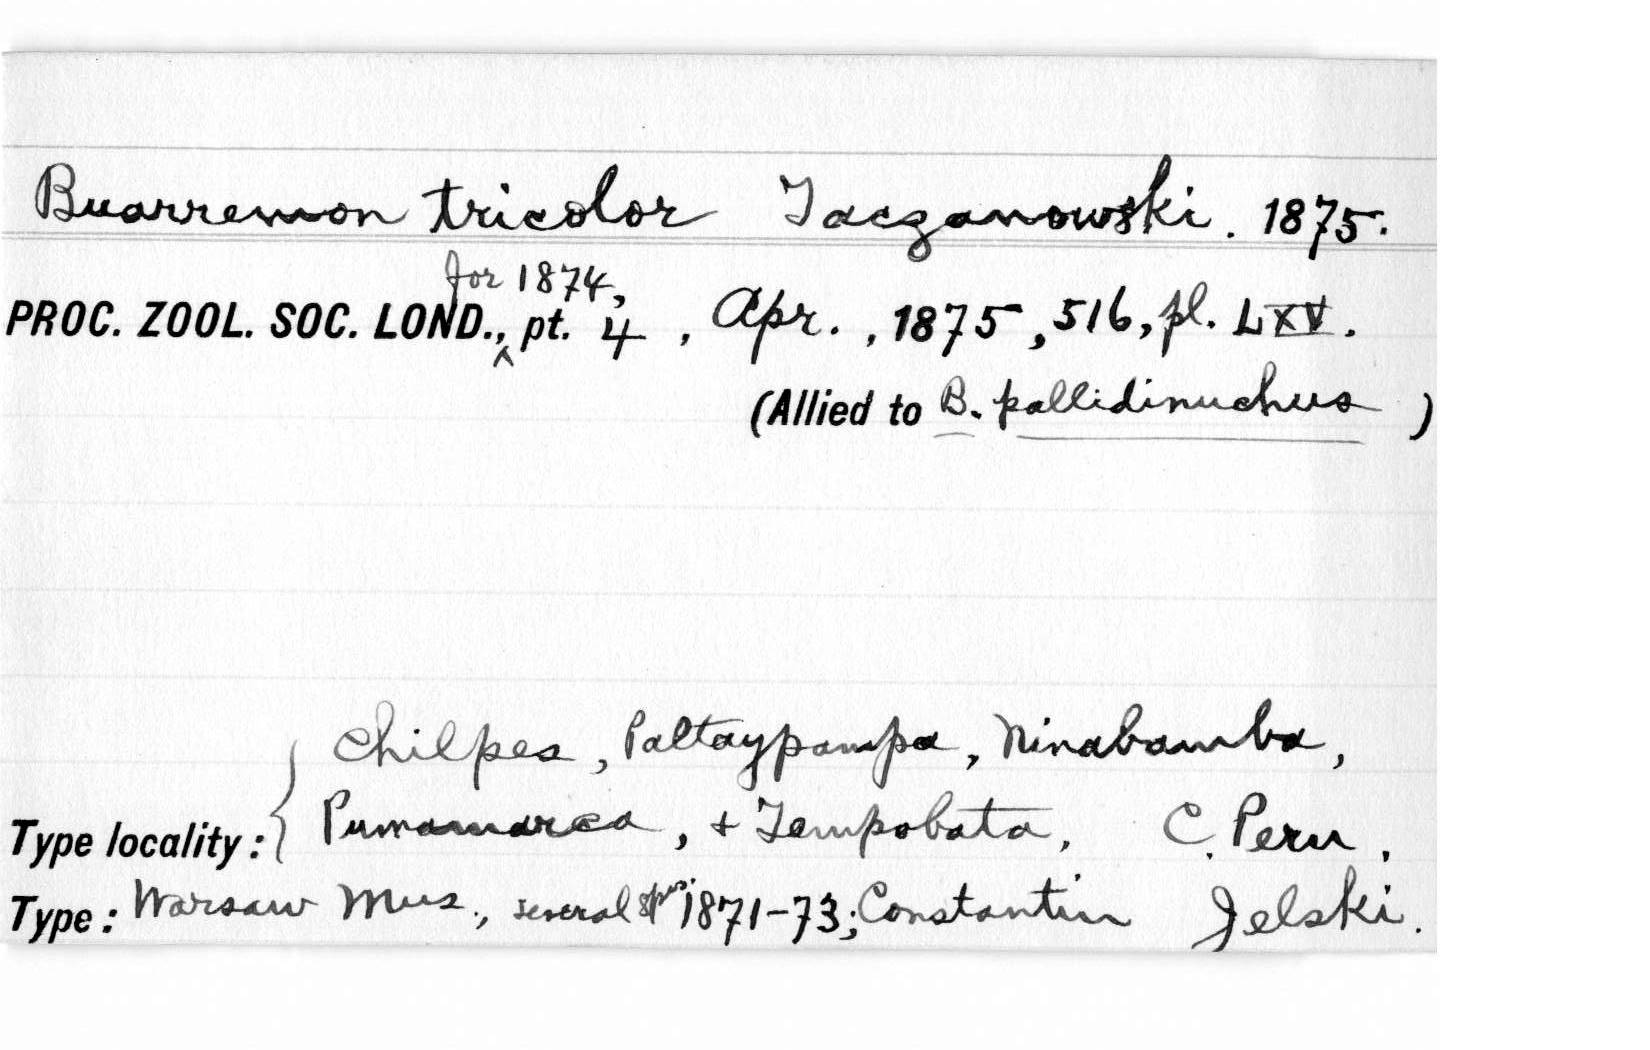 Buarremon tricolor Taczanowski. 1875.
for 1874,
PROC. ZOOL. SOC. LOND., ^ pt. 4, Apr., 1875, 516, pl. LXV.
(Allied to B. pallidinuchus)
Chilpes, Paltaypampa, Ninabamba,
Type locality: { Pumamarca, + Tempobata, C. Peru.
Type: Warsaw Mus., several spms. 1871-73; Constantin Jelski.